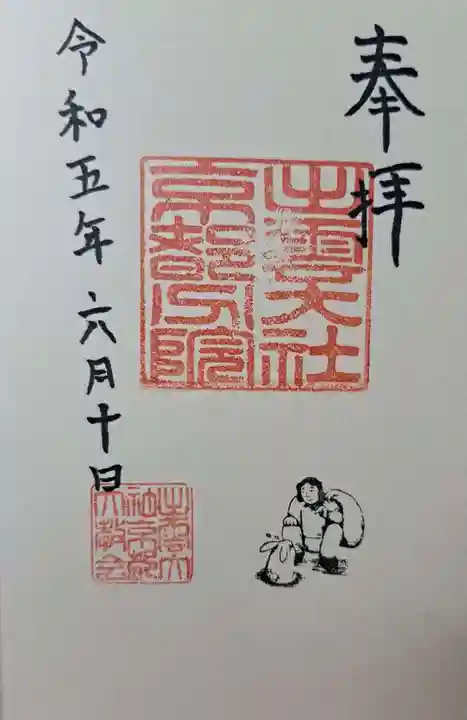 奉拝
出雲大社
京都分院
令和五年六月十日
出雲大
社京都
大教会